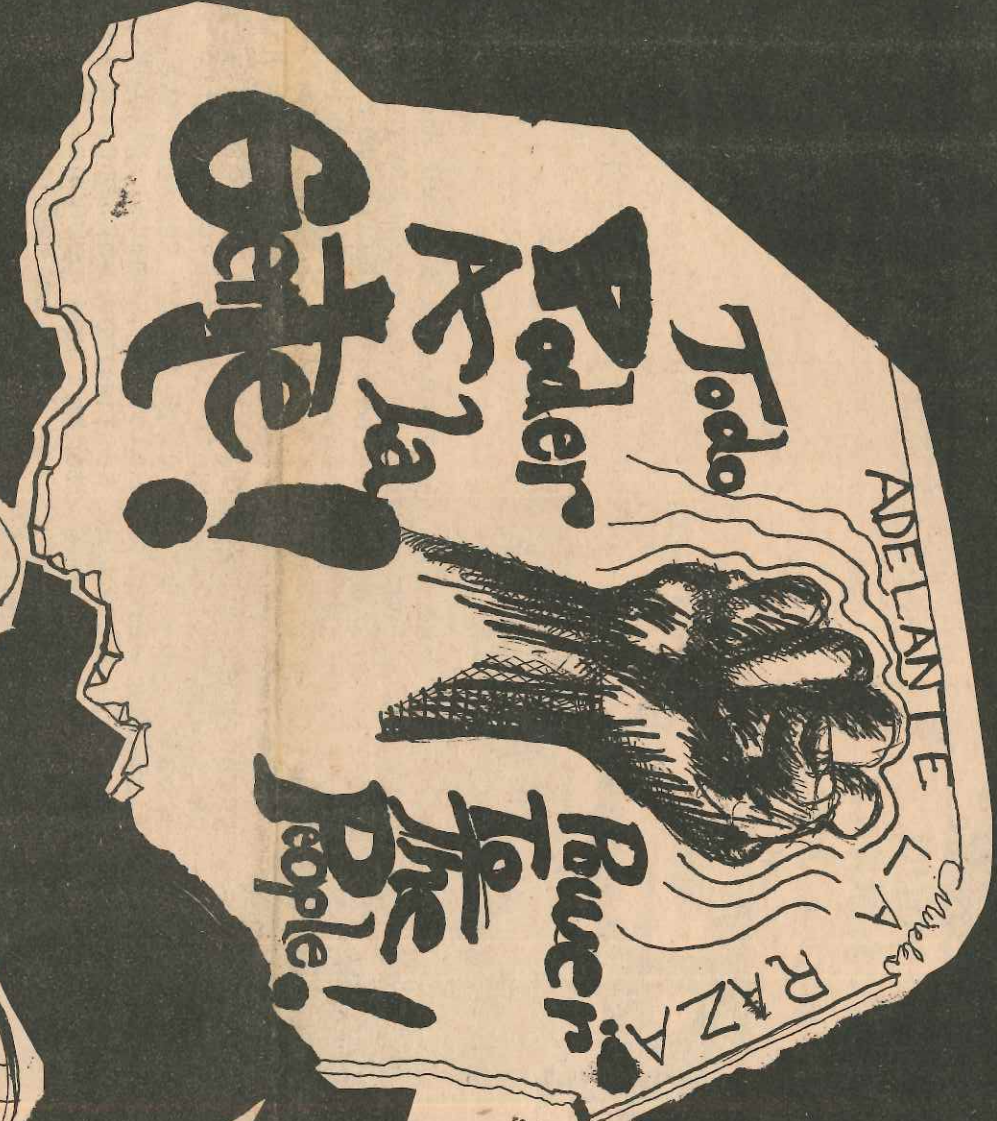 ADELANTE LA RAZA
Todo
Poder
A La
Gente!
Power
To
The
People!